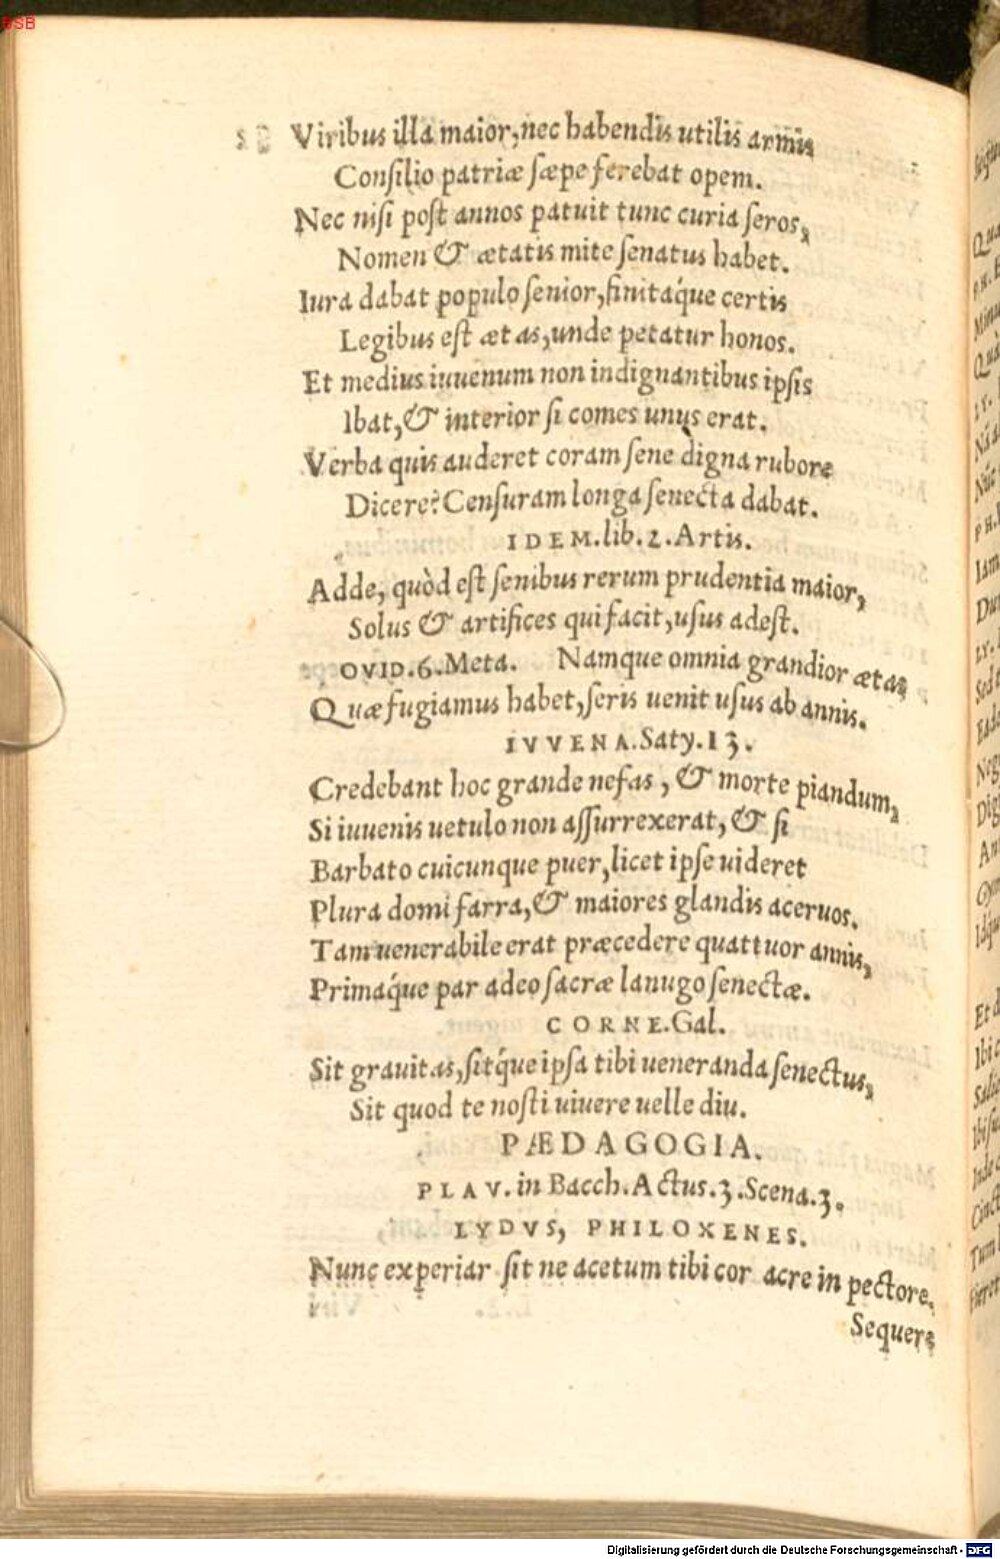 BSB
Viribus illa maior, nec habendis utilis armis
Consilio patriæ sæpe ferebat opem.
Nec nisi post annos patuit tunc curia seros,
Nomen & ætatis mite senatus habet.
Iura dabat populo senior, finitáque certis
Legibus est ætas, unde petatur honos.
Et medius iuuenum non indignantibus ipsis
Ibat, & interior si comes unus erat.
Verba quis auderet coram sene digna rubore
Dicere? Censuram longa senecta dabat.
IDEM. lib. 2. Artis.
Adde, quòd est senibus rerum prudentia maior,
Solus & artifices qui facit, usus adest.
OVID. 6. Meta. Namque omnia grandior ætas
Quæ fugiamus habet, seris uenit usus ab annis.
IVVENA. Saty. 13.
Credebant hoc grande nefas, & morte piandum,
Si iuuenis uetulo non assurrexerat, & si
Barbato cuicunque puer, licet ipse uideret
Plura domi farra, & maiores glandis aceruos.
Tam uenerabile erat præcedere quattuor annis,
Primáque par adeo sacræ lanugo senectæ.
CORNE. Gal.
Sit grauitas, sitq́ue ipsa tibi ueneranda senectus,
Sit quod te nosti uiuere uelle diu.
PÆDAGOGIA.
PLAV. in Bacch. Actus. 3. Scena. 3.
LYDVS, PHILOXENES.
Nunc experiar sit ne acetum tibi cor acre in pectore.
Sequere
Digitalisierung gefördert durch die Deutsche Forschungsgemeinschaft - DFG